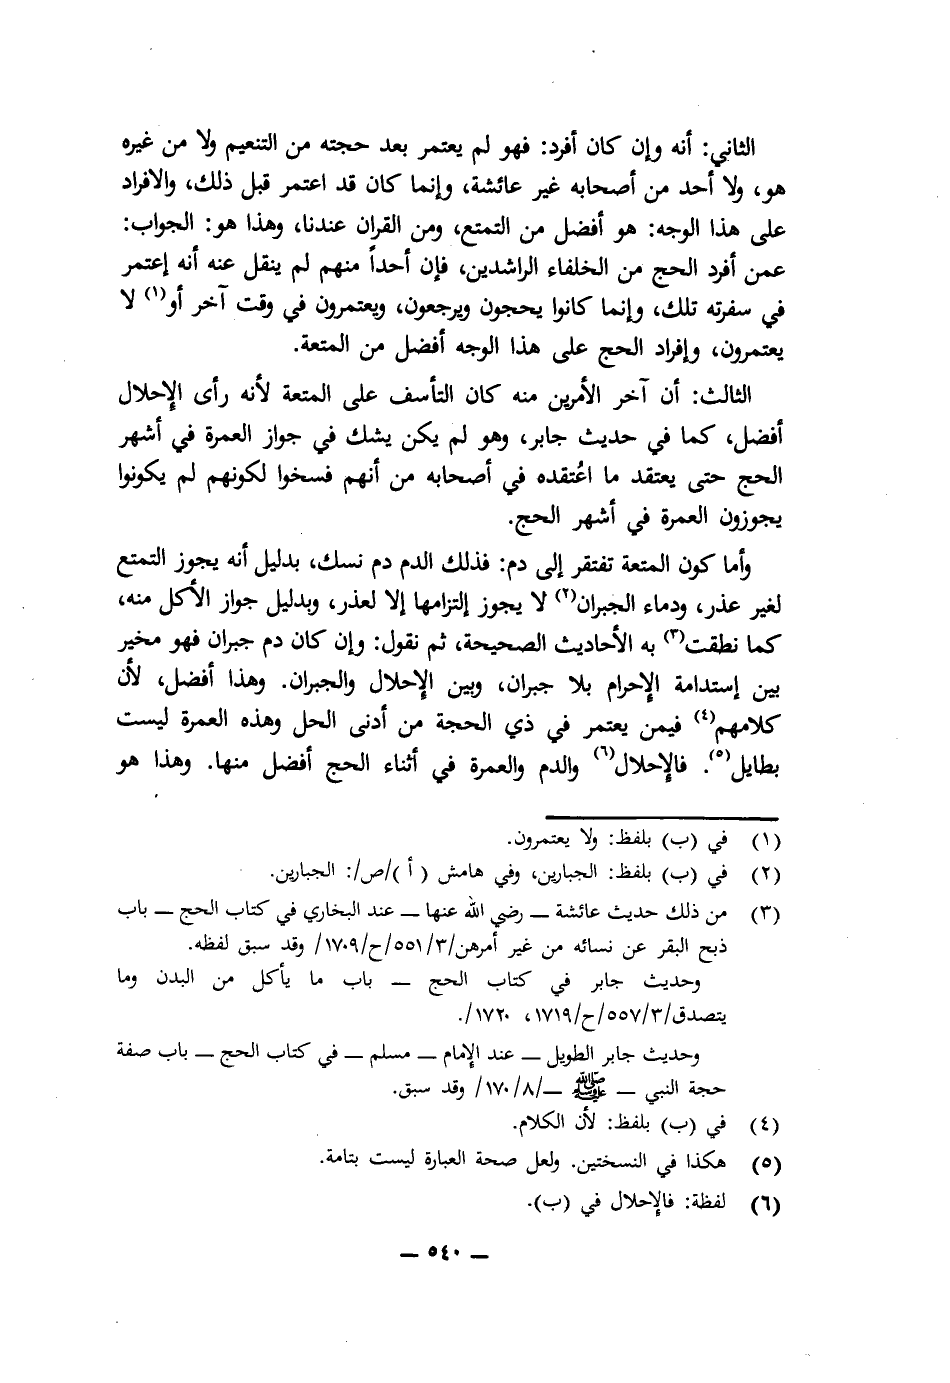 الثاني: أنه وإن كان أفرد: فهو لم يعتمر بعد حجته من التنعيم ولا من غيره
هو، ولا أحد من أصحابه غير عائشة، وإنما كان قد اعتمر قبل ذلك، والافراد
على هذا الوجه: هو أفضل من التمتع، ومن القران عندنا، وهذا هو: الجواب:
عمن أفرد الحج من الخلفاء الراشدين، فإن أحداً منهم لم ينقل عنه أنه إعتمر
في سفرته تلك، وإنما كانوا يحجون ويرجعون، ويعتمرون في وقت آخر أو(١) لا
يعتمرون، وإفراد الحج على هذا الوجه أفضل من المتعة.
الثالث: أن آخر الأمرين منه كان التأسف على المتعة لأنه رأى الإحلال
أفضل، كما في حديث جابر، وهو لم يكن يشك في جواز العمرة في أشهر
الحج حتى يعتقد ما اعُتقده في أصحابه من أنهم فسخوا لكونهم لم يكونوا
يجوزون العمرة في أشهر الحج.
وأما كون المتعة تفتقر إلى دم: فذلك الدم دم نسك، بدليل أنه يجوز التمتع
لغير عذر، ودماء الجبران(٢) لا يجوز إلتزامها إلا لعذر، وبدليل جواز الأكل منه،
كما نطقت(٣) به الأحاديث الصحيحة، ثم نقول: وإن كان دم جبران فهو مخير
بين إستدامة الإحرام بلا جبران، وبين الإحلال والجبران. وهذا أفضل، لأن
كلامهم(٤) فيمن يعتمر في ذي الحجة من أدنى الحل وهذه العمرة ليست
بطايل(٥). فالإحلال(٦) والدم والعمرة في أثناء الحج أفضل منها. وهذا هو
(١) في (ب) بلفظ: ولا يعتمرون.
(٢) في (ب) بلفظ: الجبارين، وفي هامش ( أ )/ص/: الجبارين.
(٣) من ذلك حديث عائشة ــ رضي الله عنها ــ عند البخاري في كتاب الحج ــ باب
ذبح البقر عن نسائه من غير أمرهن/٥٥١/٣/ح/١٧٠٩/ وقد سبق لفظه.
وحديث جابر في كتاب الحج ــ باب ما يأكل من البدن وما
يتصدق/٥٥٧/٣/ح/١٧١٩، ١٧٢٠/.
وحديث جابر الطويل ــ عند الإمام ــ مسلم ــ في كتاب الحج ــ باب صفة
حجة النبي ــ ﷺ ــ/١٧٠/٨/ وقد سبق.
(٤) في (ب) بلفظ: لأن الكلام.
(٥) هكذا في النسختين. ولعل صحة العبارة ليست بتامة.
(٦) لفظة: فالإحلال في (ب).
ــ ٥٤٠ ــ